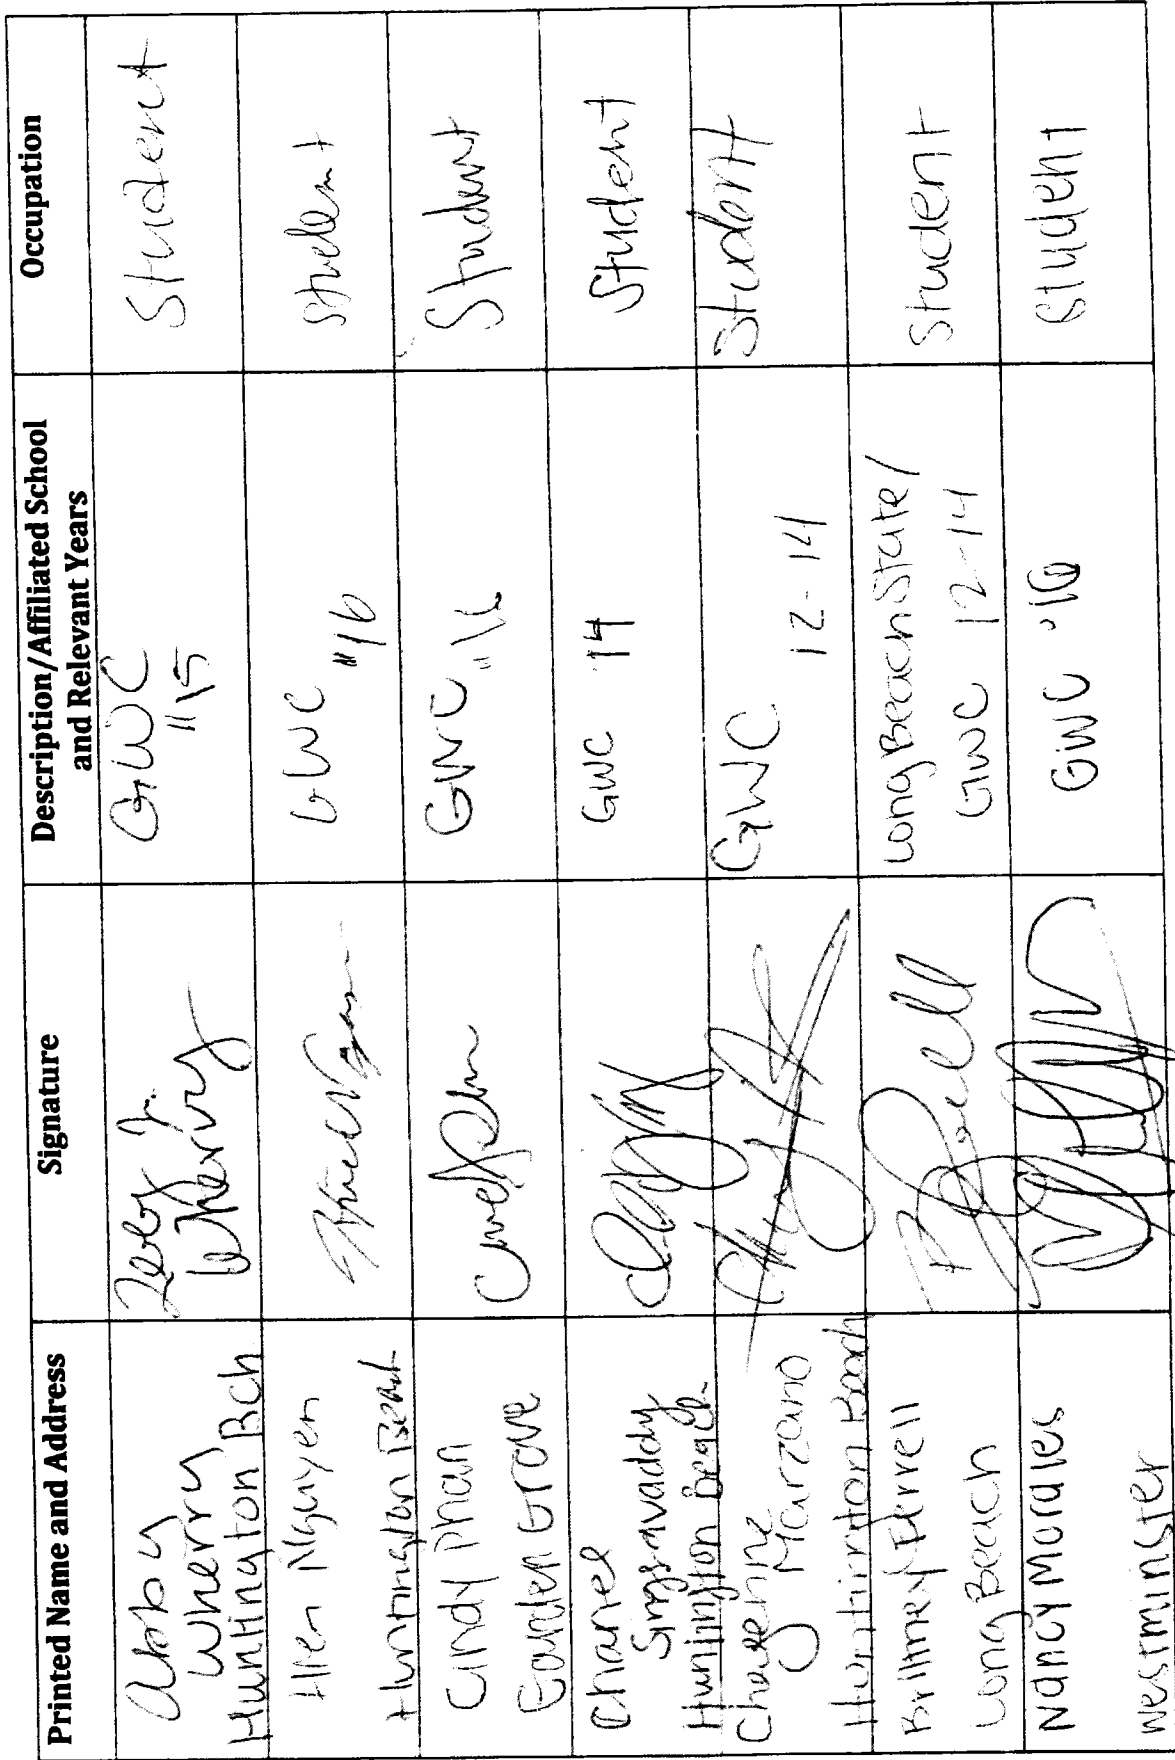 Printed Name and Address
Signature
Description/Affiliated School
and Relevant Years
Occupation
Wherry
Huntington Bch
Wherry
GWC
"15
Student
Hien Nguyen
Huntington Beach
GWC "16
Student
Cindy Phan
Garden Grove
GWC "16
Student
Chanel
Singsavaddy
Huntington Beach
GWC '14
Student
Chayenne
Marzano
Huntington Beach
GWC
12-14
Student
Brittney Ferrell
Long Beach
Long Beach State/
GWC 12-14
Student
Nancy Morales
Westminster
GWC '16
Student